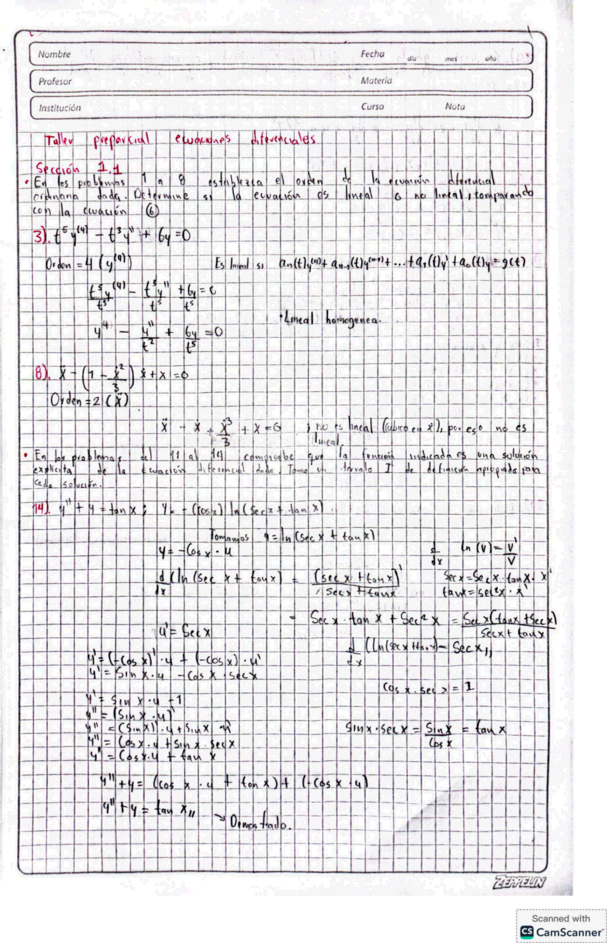 Nombre Fecha día mes año
Profesor Materia
Institución Curso Nota
Taller preparcial ecuaciones diferenciales
Sección 1.1
• En los problemas 1 a 8 establezca el orden de la ecuación diferencial
ordinaria dada. Determine si la ecuación es lineal o no lineal, comparando
con la ecuación (6)
3). t⁵y⁽⁴⁾ - t³y'' + 6y = 0
Orden = 4 (y⁽⁴⁾) Es lineal si aₙ(t)y⁽ⁿ⁾ + aₙ₋₁(t)y⁽ⁿ⁻¹⁾ + ... + a₁(t)y' + a₀(t)y = g(t)
t⁵y⁽⁴⁾/t⁵ - t³y''/t⁵ + 6y/t⁵ = 0
• Lineal homogenea.
y⁴ - y''/t² + 6y/t⁵ = 0
8). ẍ - (1 - ẋ²/3) ẋ + x = 0
Orden = 2 (ẍ)
ẍ - ẋ + ẋ³/3 + x = 0 ; no es lineal (cubico en ẋ), por eso no es
lineal,
• En los problemas del 11 al 14 compruebe que la función indicada es una solución
explicita de la ecuación diferencial dada. Tome un I de definición apropiado para
cada solución.
14). y'' + y = tan x ; y = -(cos x) ln(sec x + tan x).
Tomamos u = ln(sec x + tan x)
y = -Cos x · u d/dx ln(v) = v'/v
d/dx (ln(sec x + tan x) = (sec x + tan x)'/sec x + tan x Sec x = Sec x · tan x · x'
tan x = sec²x · x'
= Sec x · tan x + Sec² x = Sec x(tan x + sec x)/Sec x + tan x
u' = Sec x
d/dx (ln(sec x + tan x) = Sec x,,
y' = (-Cos x)' · u + (-cos x) · u'
y' = Sin x · u - Cos x · sec x
Cos x · sec x = 1
y' = Sin x · u - 1
y'' = (Sin x · u)'
y'' = (Sin x)' · u + Sin x · u' Sin x · sec x = Sin x/Cos x = tan x
y'' = Cos x · u + Sin x · sec x
y' = Cos x · u + tan x
y'' + y = (cos x · u + tan x) + (-Cos x · u)
y'' + y = tan x,, → Demostrado.
ZEPPELIN
Scanned with
CS CamScanner